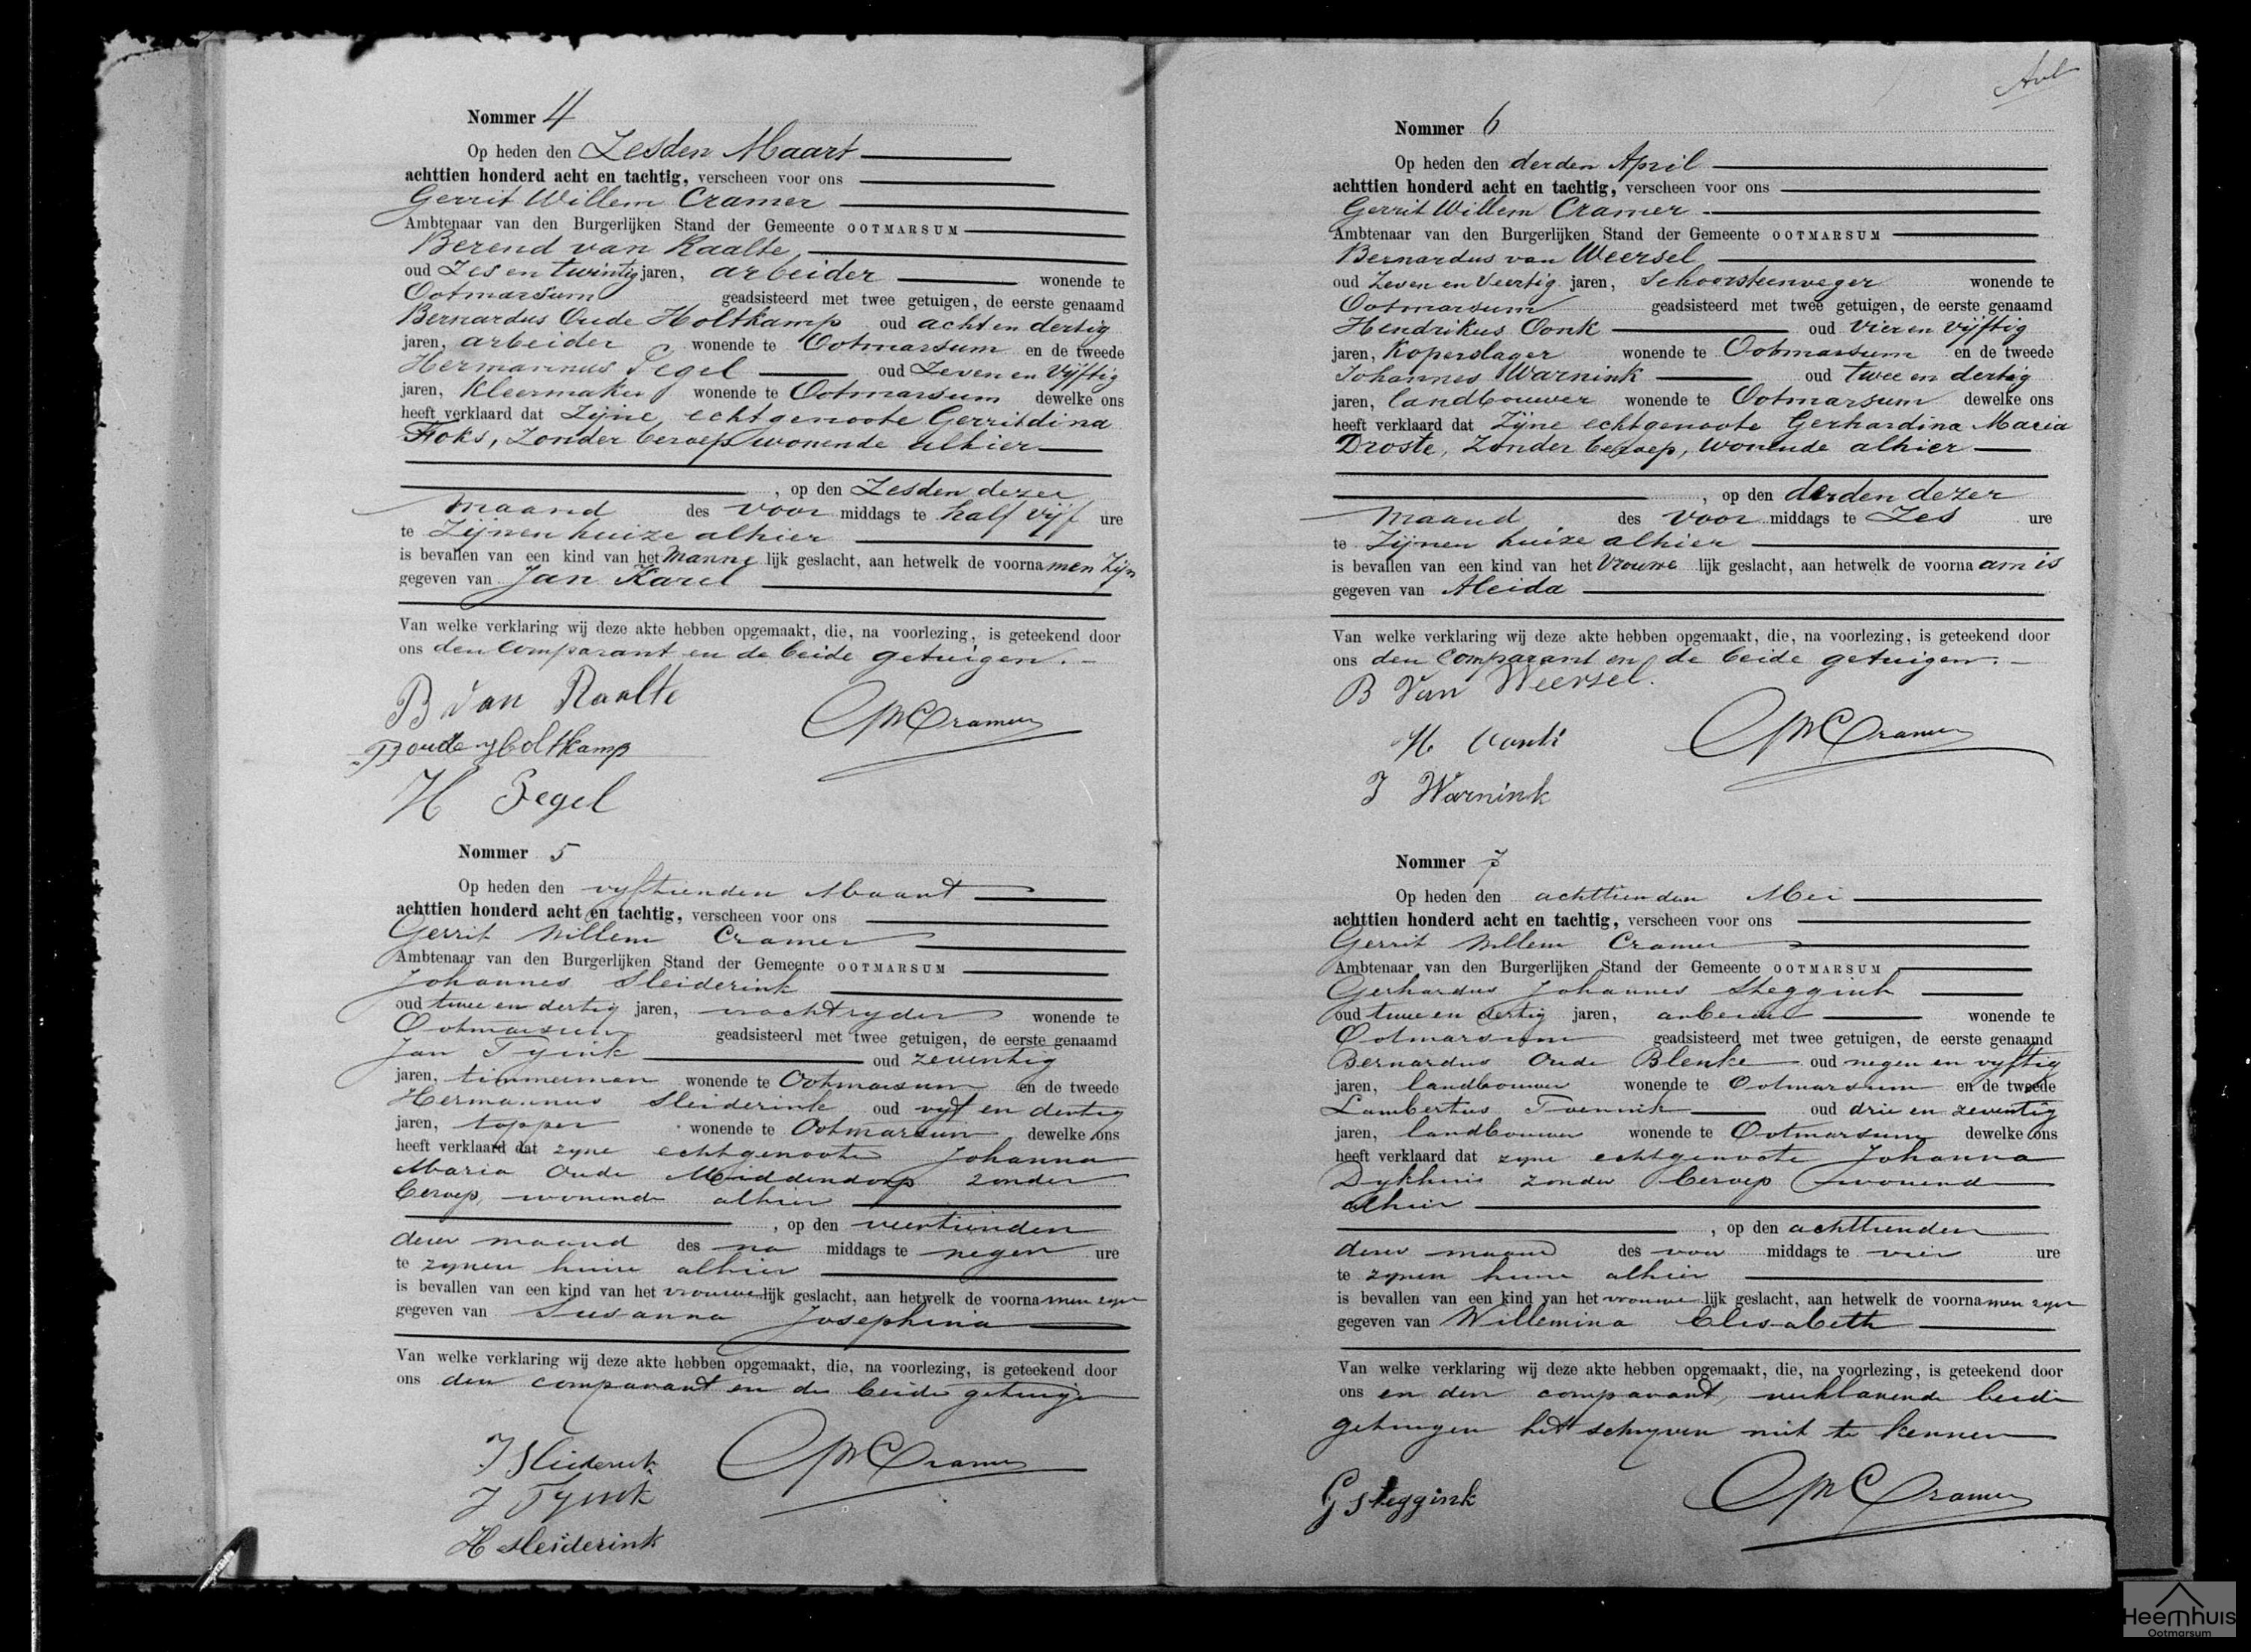 Nommer 4
Op heden den Zesden Maart
achttien honderd acht en tachtig, verscheen voor ons
Gerrit Willem Cramer
Ambtenaar van den Burgerlijken Stand der Gemeente OOTMARSUM
Berend van Raalte
oud Zes en twintig jaren, arbeider wonende te
Ootmarsum geadsisteerd met twee getuigen, de eerste genaamd
Bernardus Oude Holtkamp oud acht en dertig
jaren, arbeider wonende te Ootmarsum en de tweede
Hermannus Pegel oud Zeven en Vijftig
jaren, Kleermaker wonende te Ootmarsum dewelke ons
heeft verklaard dat Zijne echtgenoote Gerritdina
Foks, Zonder beroep wonende alhier
, op den Zesden dezer
maand des voor middags te half vijf ure
te Zijnen huize alhier
is bevallen van een kind van het Manne lijk geslacht, aan hetwelk de voorna men Zijn
gegeven van Jan Karel
Van welke verklaring wij deze akte hebben opgemaakt, die, na voorlezing, is geteekend door
ons den Comparant en de beide getuigen.
B van Raalte
GWCramer
B oude Holtkamp
H Pegel
Nommer 5
Op heden den vyftienden Maart
achttien honderd acht en tachtig, verscheen voor ons
Gerrit Willem Cramer
Ambtenaar van den Burgerlijken Stand der Gemeente OOTMARSUM
Johannes Sleiderink
oud twee en dertig jaren, vrachtryder wonende te
Ootmarsum geadsisteerd met twee getuigen, de eerste genaamd
Jan Tyink oud zeventig
jaren, timmerman wonende te Ootmarsum en de tweede
Hermannus Sleiderink oud vyf en dertig
jaren, tapper wonende te Ootmarsum dewelke ons
heeft verklaard dat zyne echtgenoote Johanna
Maria Oude Middendorp zonder
beroep, wonende alhier
, op den veertienden
dezer maand des na middags te negen ure
te zynen huize alhier
is bevallen van een kind van het vrouwe lijk geslacht, aan hetwelk de voorna men zyn
gegeven van Susanna Josephina
Van welke verklaring wij deze akte hebben opgemaakt, die, na voorlezing, is geteekend door
ons den comparant en de beide getuigen
J Sleiderink
GWCramer
J Tyink
H Sleiderink
Nommer 6
Op heden den derden April
achttien honderd acht en tachtig, verscheen voor ons
Gerrit Willem Cramer
Ambtenaar van den Burgerlijken Stand der Gemeente OOTMARSUM
Bernardus van Weersel
oud Zeven en Veertig jaren, Schoorsteenveger wonende te
Ootmarsum geadsisteerd met twee getuigen, de eerste genaamd
Hendrikus Oonk oud Vier en Vijftig
jaren, Koperslager wonende te Ootmarsum en de tweede
Johannes Warnink oud twee en dertig
jaren, landbouwer wonende te Ootmarsum dewelke ons
heeft verklaard dat Zijne echtgenoote Gerhardina Maria
Droste, Zonder beroep, wonende alhier
, op den derden dezer
maand des Voor middags te Zes ure
te Zijnen huize alhier
is bevallen van een kind van het Vrouwe lijk geslacht, aan hetwelk de voorna am is
gegeven van Aleida
Van welke verklaring wij deze akte hebben opgemaakt, die, na voorlezing, is geteekend door
ons den Comparant en de beide getuigen.
B Van Weersel.
H Oonk
GWCramer
J Warnink
Nommer 7
Op heden den achttienden Mei
achttien honderd acht en tachtig, verscheen voor ons
Gerrit Willem Cramer
Ambtenaar van den Burgerlijken Stand der Gemeente OOTMARSUM
Gerhardus Johannes Steggink
oud twee en dertig jaren, arbeider wonende te
Ootmarsum geadsisteerd met twee getuigen, de eerste genaamd
Bernardus Oude Blenke oud negen en vyftig
jaren, landbouwer wonende te Ootmarsum en de tweede
Lambertus oud drie en zeventig
jaren, landbouwer wonende te Ootmarsum dewelke ons
heeft verklaard dat zyne echtgenoote Johanna
Dykhuis zonder beroep wonende
alhier
, op den achttienden
dezer maand des voor middags te vier ure
te zynen huize alhier
is bevallen van een kind van het vrouwe lijk geslacht, aan hetwelk de voorna men zyn
gegeven van Willemina Elisabeth
Van welke verklaring wij deze akte hebben opgemaakt, die, na voorlezing, is geteekend door
ons en den comparant, verklarende beide
getuigen het schryven niet te kennen
G Steggink
GWCramer
Heemhuis
Ootmarsum